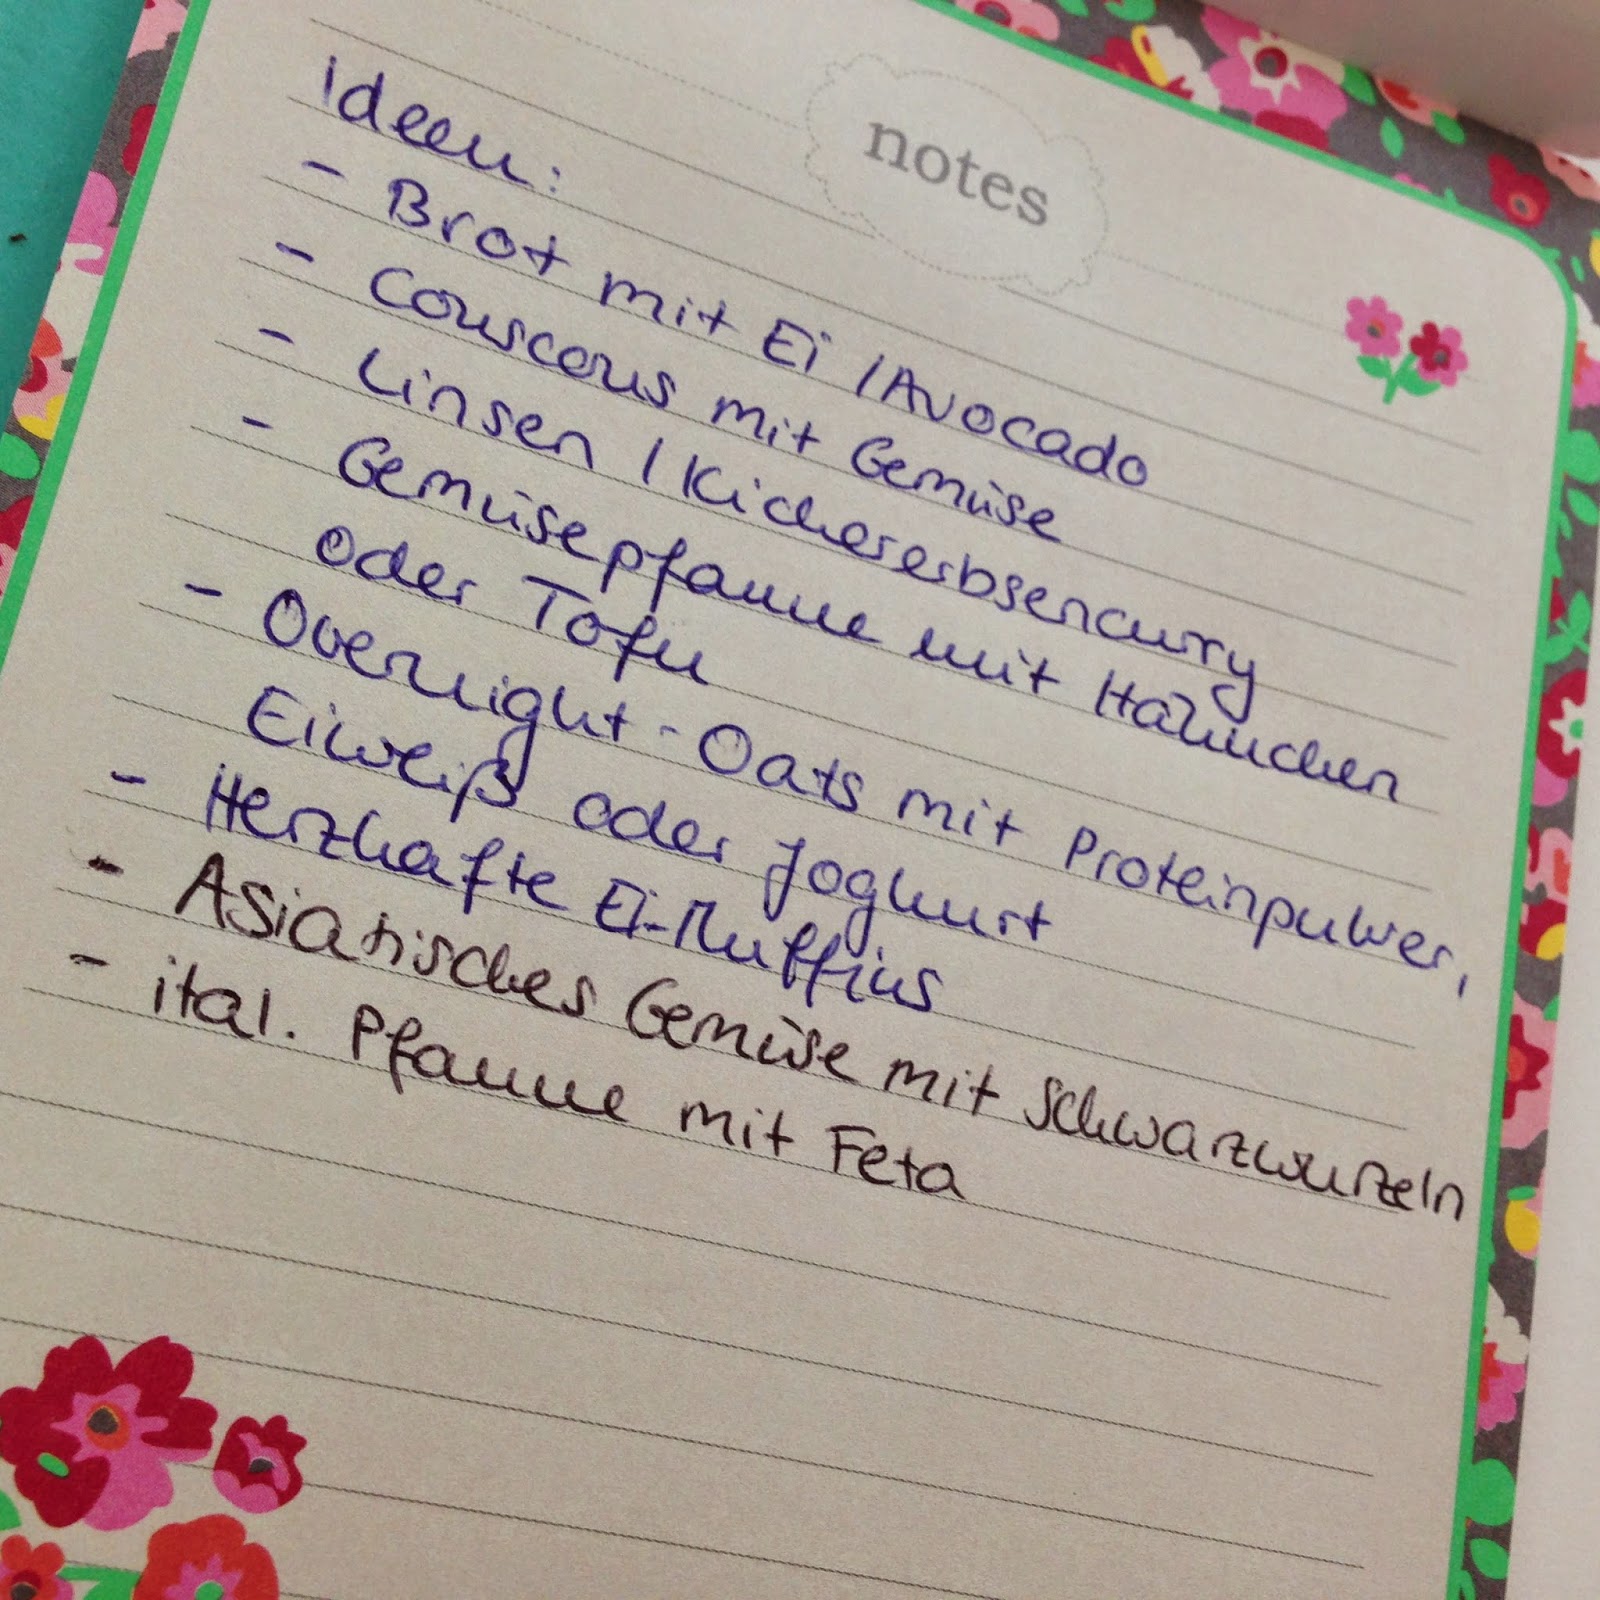 notes
Ideen:
- Brot mit Ei / Avocado
- Couscous mit Gemüse
- Linsen / Kichererbsencurry
- Gemüsepfanne mit Hähnchen
oder Tofu
- Overnight-Oats mit Proteinpulver,
Eiweiß oder Joghurt
- Herzhafte Ei-Muffins
- Asiatisches Gemüse mit Schwarzwurzeln
- ital. Pfanne mit Feta